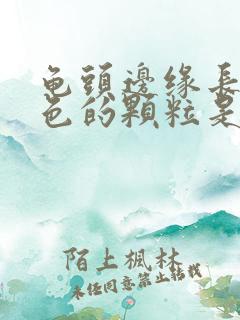 龟頭邊緣長
色的顆粒是
陌上楓林
未经同意禁止转载